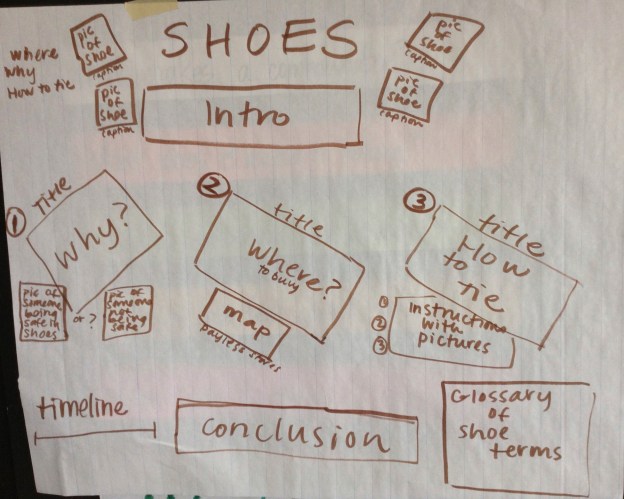 where
why
How to tie
pic
of
shoe
caption
pic
of
shoe
caption
SHOES
Intro
pic
of
shoe
caption
pic
of
shoe
caption
1
Title
why?
pic of
someone
being
safe in
shoes
or?
pic of
someone
not
being
safe?
2
title
where?
to buy
map
payless stores
3
title
How
to
tie
1
2
3
instructions
with
pictures
timeline
conclusion
Glossary
of
shoe
terms